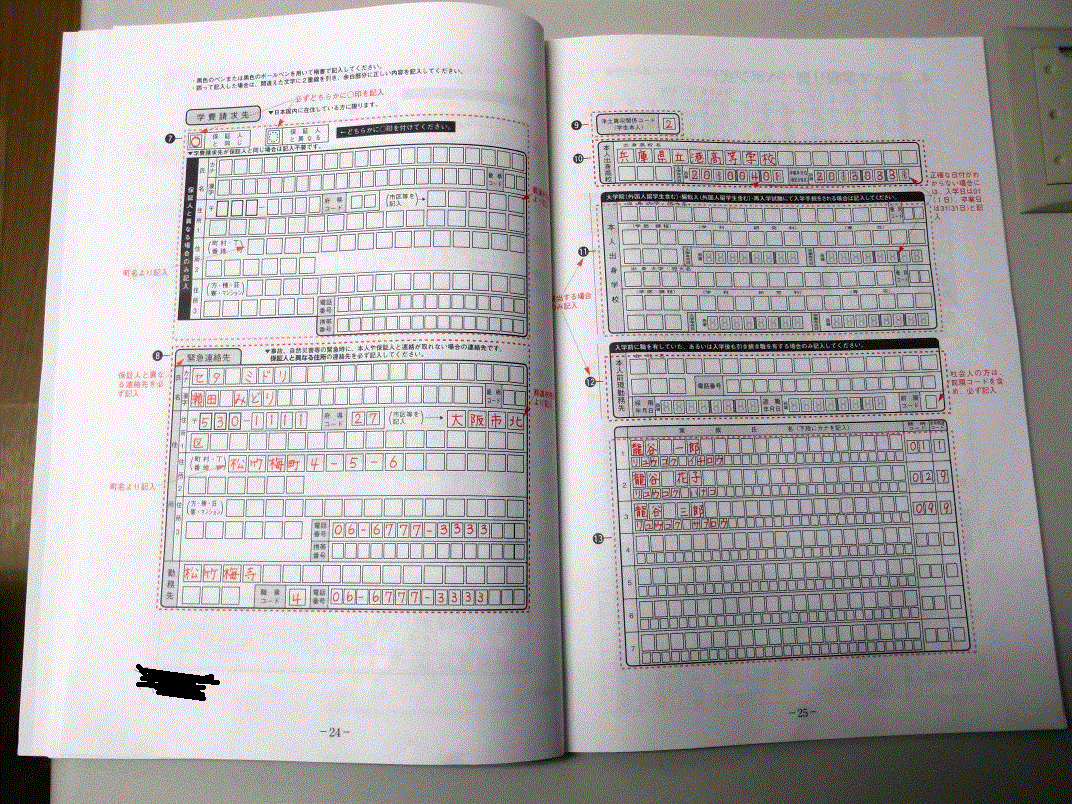 ・黒色のペンまたは黒色のボールペンを用いて楷書で記入してください。
・誤って記入した場合は、間違えた文字に2重線を引き、余白部分に正しい内容を記入してください。
必ずどちらかに○印を記入
学費請求先
▼日本国内に在住している方に限ります。
❼
○ 保証人と同じ
保証人と異なる
←どちらかに○印を付けてください。
▼学費請求先が保証人と同じ場合は記入不要です。
保証人と異なる場合のみ記入
氏名
カナ
漢字
住所1
〒
府県コード
(市区等を記入)→
町名より記入
住所2
(町村・丁番地)
住所3
(方・棟・荘寮・マンション)
電話番号
携帯番号
❽
緊急連絡先
▼事故、自然災害等の緊急時に、本人や保証人と連絡が取れない場合の連絡先です。
保証人と異なる住所の連絡先を必ず記入してください。
保証人と異なる連絡先を必ず記入
氏名
カナ
セタ ミドリ
漢字
瀬田 みどり
〒530-1111
府県コード
27
(市区等を記入)→
大阪市北
区
町名より記入
(町村・丁番地)
松竹梅町4-5-6
(方・棟・荘寮・マンション)
電話番号
06-6777-3333
携帯番号
勤務先
松竹梅寺
職業コード
4
電話番号
06-6777-3333
-24-
❾
浄土真宗関係コード
(学生本人)
2
❿
本人出身高校
出身高校名
兵庫県立港高等学校
20100401
20130331
正確な日付がわからない場合には、入学日は01(1日)、卒業日は31(31日)と記入
大学院(外国人留学生含む)・編転入(外国人留学生含む)・再入学試験にて入学手続をされる場合は記入してください。
⓫
本人出身学校
出身大学・短大名
入学前に職を有していた、あるいは入学後も引き続き職を有する場合のみ記入してください。
⓬
本人前現勤務先
電話番号
⓭
家族氏名(下段にカナを記入)
1
龍谷 一郎
リュウコク イチロウ
011
2
龍谷 花子
リュウコク ハナコ
029
3
龍谷 三郎
リュウコク サブロウ
099
4
5
6
7
-25-